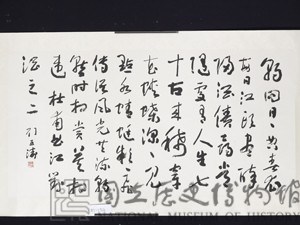 朝回日日典春衣
每日江頭盡醉
歸酒債尋常
行處有人生七
十古來稀穿
花蛺蝶深深見
點水蜻蜓款款飛
傳語風光共流轉
暫時相賞莫相
違杜甫曲江對
酒之二
國立歷史博物館
NATIONAL MUSEUM OF HISTORY